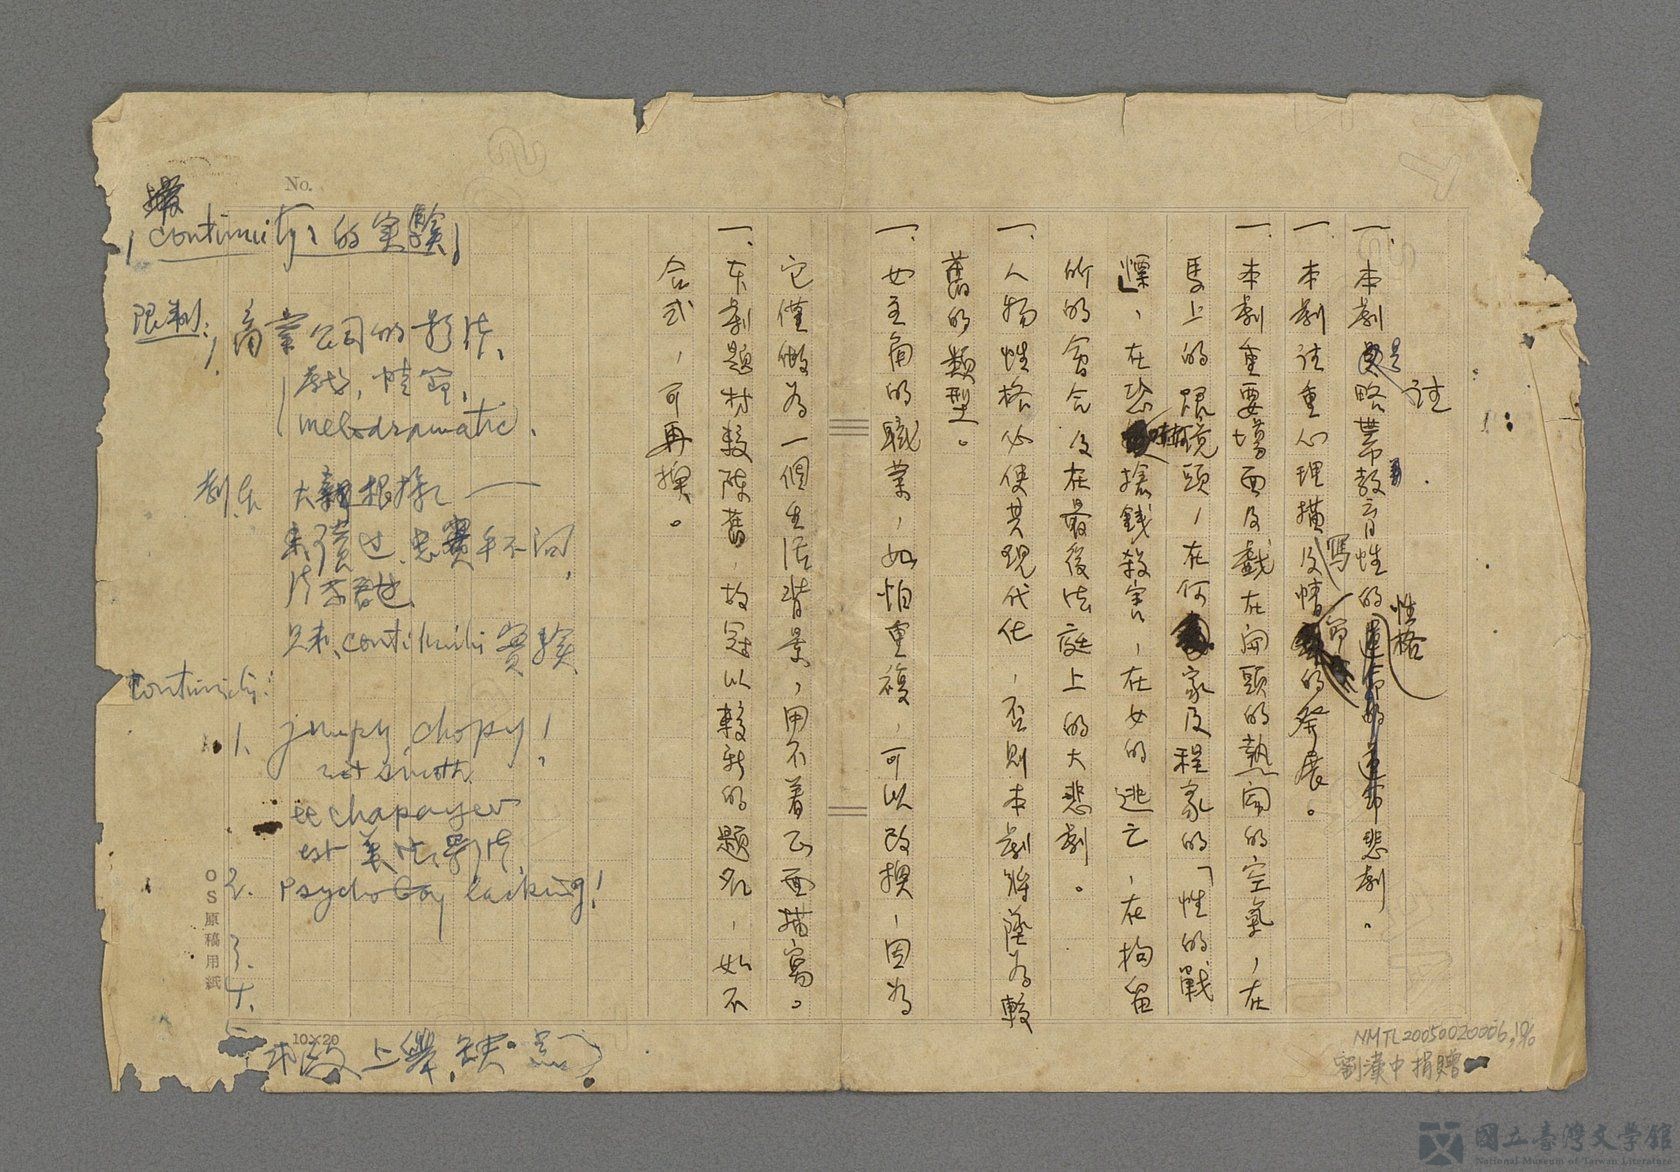 註
一、本劇是略帶教育性的
性格
悲劇。
一、本劇注重心理描寫及情節的發展。
一、本劇重要場面及戲在開頭的熱鬧的空氣，在
馬上的跟鏡頭，在何家及程家的「性的戰
慄」，在恐嚇搶錢殺害，在女的逃亡，在拘留
所的會合及在最後法庭上的大悲劇。
一、人物性格必使其現代化，否則本劇將墜為較
舊的類型。
一、女主角的職業，如怕重複，可以改換，因為
它僅做為一個生活背景，用不着正面描寫。
一、本劇題材較陳舊，故冠以較新的題名，如不
合式，可再換。
No.
continuity的实驗
限制：
1、商業公司的影片、
melodramatic、
劇本
大綱根據
只求 continuity 實驗
continuity：
1. jumpy, chopy!
not smooth
chapayev
2. Psychology lacking!
3.
4.
5.
上舉缺点
10×20
OS原稿用紙
NMTL20050020006
劉漢中捐贈
國立臺灣文學館
National Museum of Taiwan Literature